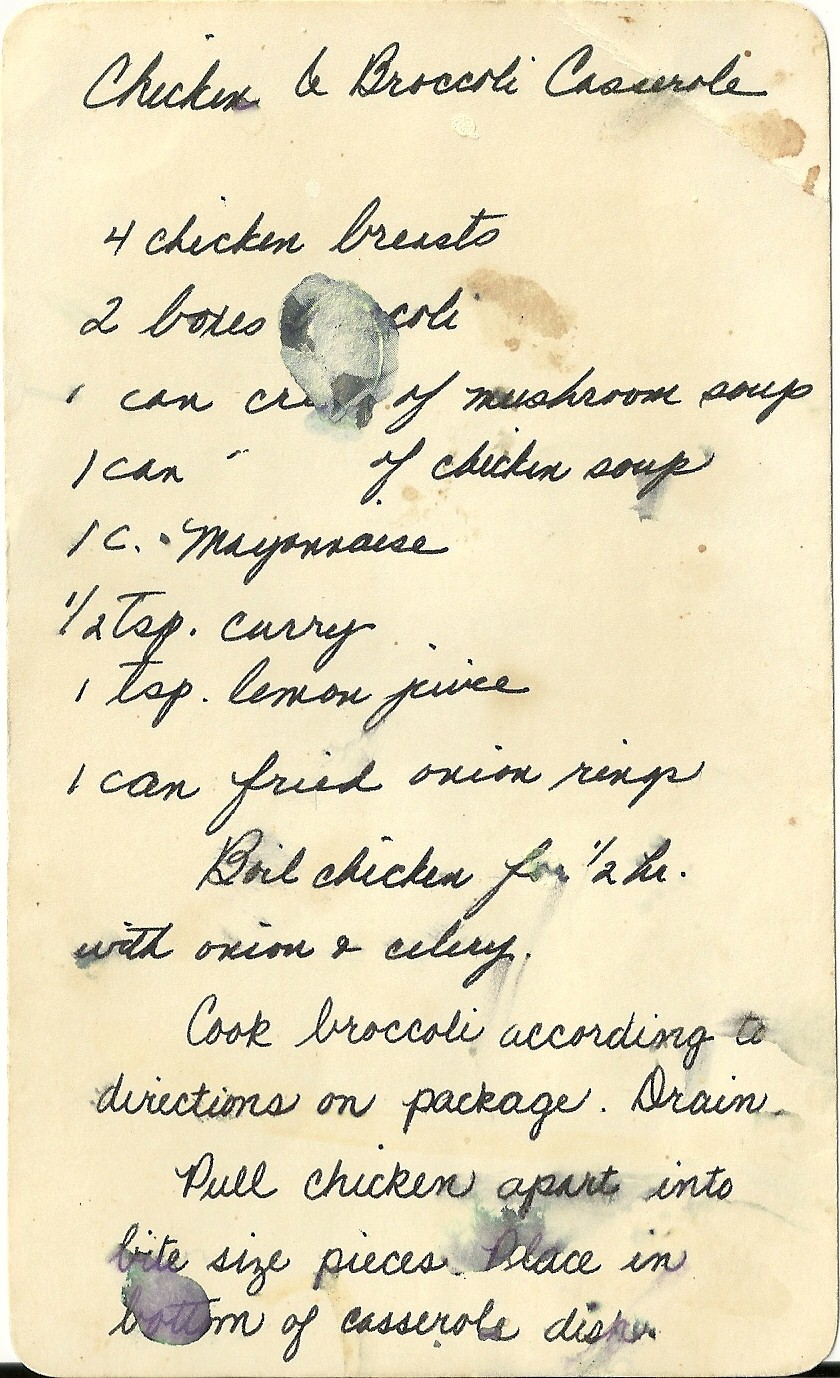 Chicken & Broccoli Casserole
4 chicken breasts
2 boxes coli
1 can cre of mushroom soup
1 can " of chicken soup
1 c. Mayonnaise
1/2 tsp. curry
1 tsp. lemon juice
1 can fried onion rings
Boil chicken for 1/2 hr.
with onion & celery.
Cook broccoli according to
directions on package. Drain.
Pull chicken apart into
bite size pieces. Place in
bottom of casserole dish.